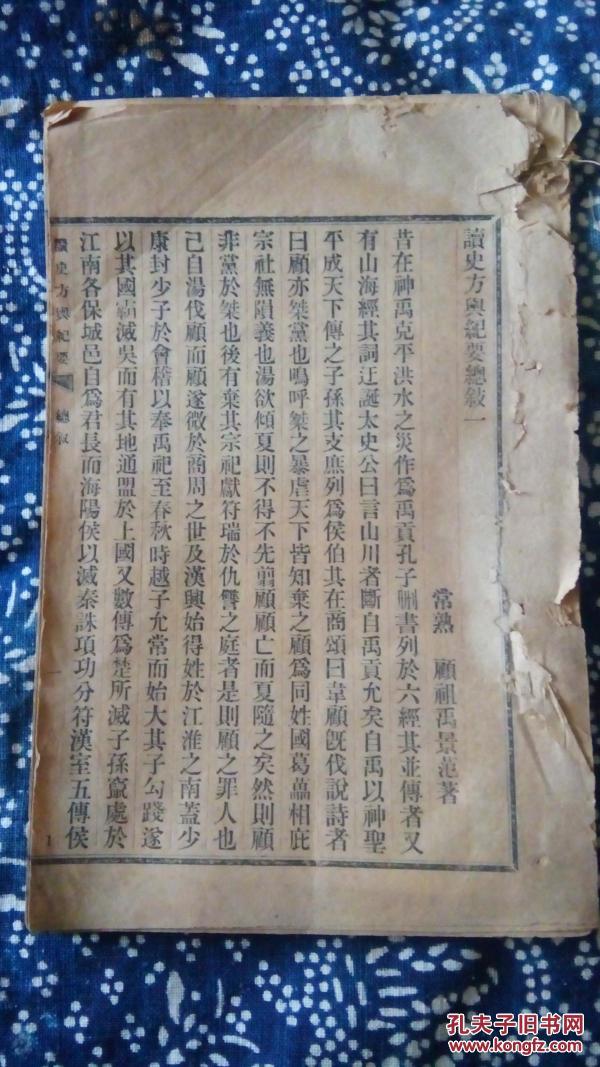 讀史方輿紀要總敍一
常熟 顧祖禹景范著
昔在神禹克平洪水之災作爲禹貢孔子刪書列於六經其並傳者又
有山海經其詞迂誕太史公曰言山川者斷自禹貢允矣自禹以神聖
平成天下傳之子孫其支庶列爲侯伯其在商頌曰韋顧旣伐說詩者
曰顧亦桀黨也嗚呼桀之暴虐天下皆知棄之顧爲同姓國葛藟相庇
宗社無隕義也湯欲傾夏則不得不先翦顧顧亡而夏隨之矣然則顧
非黨於桀也後有棄其宗祀獻符瑞於仇讐之庭者是則顧之罪人也
己自湯伐顧而顧遂微於商周之世及漢興始得姓於江淮之南蓋少
康封少子於會稽以奉禹祀至春秋時越子允常而始大其子勾踐遂
以其國霸滅吳而有其地通盟於上國又數傳爲楚所滅子孫竄處於
江南各保城邑自爲君長而海陽侯以滅秦誅項功分符漢室五傳侯
讀史方輿紀要 總敍 一
1
孔夫子旧书网
www.kongfz.com